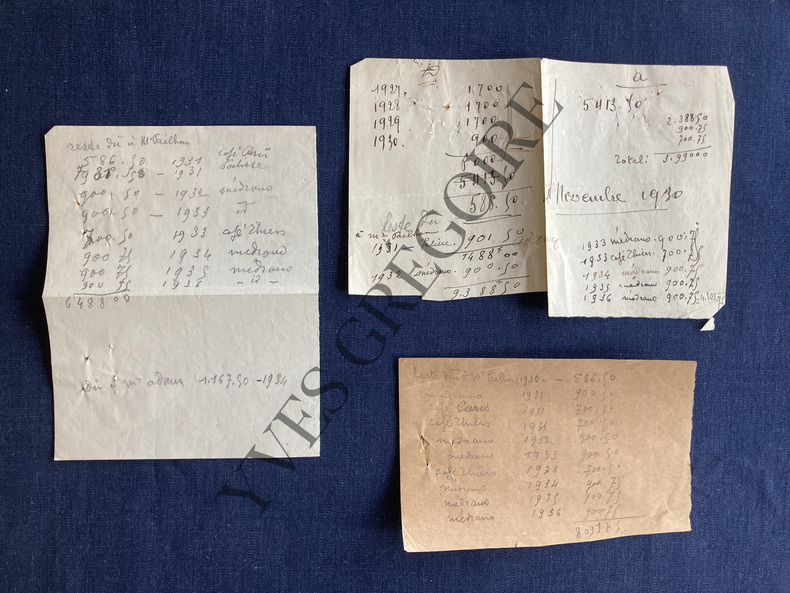 reste dû à Mr
586.50 - 1931 café Paris
1931
900.50 - 1932 médrano
900.50 - 1933 id
700.50 1933 café Thiers
900 75 1934 médrano
900 75 1935 médrano
900 75 1936 - id -
6488 00
Dû à Mr adam 1.167.50 - 1934
1927. 1700
1928 1700
1929 1700
1930. 900
5413.50
586.50
reste du
à mr
1931 - 901 50
1488.00
1932 médrano. 900.50
2388 50
a
5413.50
2.388.50
900.75
700.75
Total: 3.99000
Novembre 1930
1933 médrano. 900.75
1933 café Thiers. 700.75
1934 médrano 900.75
1935 médrano 900.75
1936 médrano 900.75
reste dû à Mr 1930 - 586.50
médrano 1931 900.50
café Paris 1931 700.50
café Thiers 1931 700.50
médrano 1932 900.50
médrano 1933 900.50
café Thiers 1933 700.50
médrano 1934 900 75
médrano 1935 900 75
médrano 1936 900 75
YVES GREGOIRE